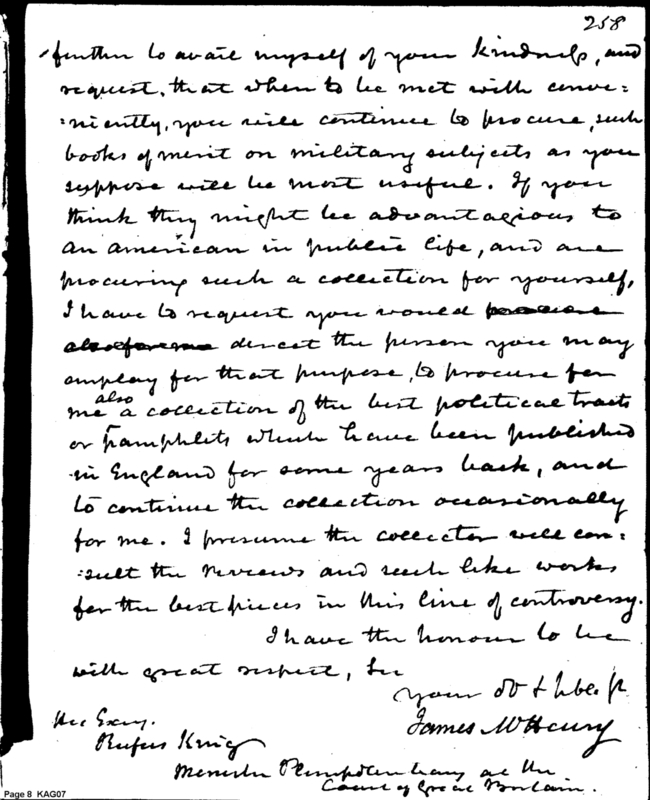 258
further to avail myself of your kindness, and
request, that when to be met with conve=
=niently, you will continue to procure, such
books of merit on military subjects as you
suppose will be most useful. If you
think they might be advantagious to
an american in public life, and are
procuring such a collection for yourself,
I have to request you would procure
also for me direct the person you may
employ for that purpose, to procure for
also
me a collection of the best political tracts
or pamphlets which have been published
in England for some years back, and
to continue the collection occasionally
for me. I presume the collector will con=
=sult the Reviews and such like works
for the best pieces in this line of controversy.
I have the honour to be
with great respect, &c
your ob t & hble
James McHenry
His Excy.
Rufus King
Minister Plenipotentiary at the
Court of Great Britain.
Page 8 KAG07